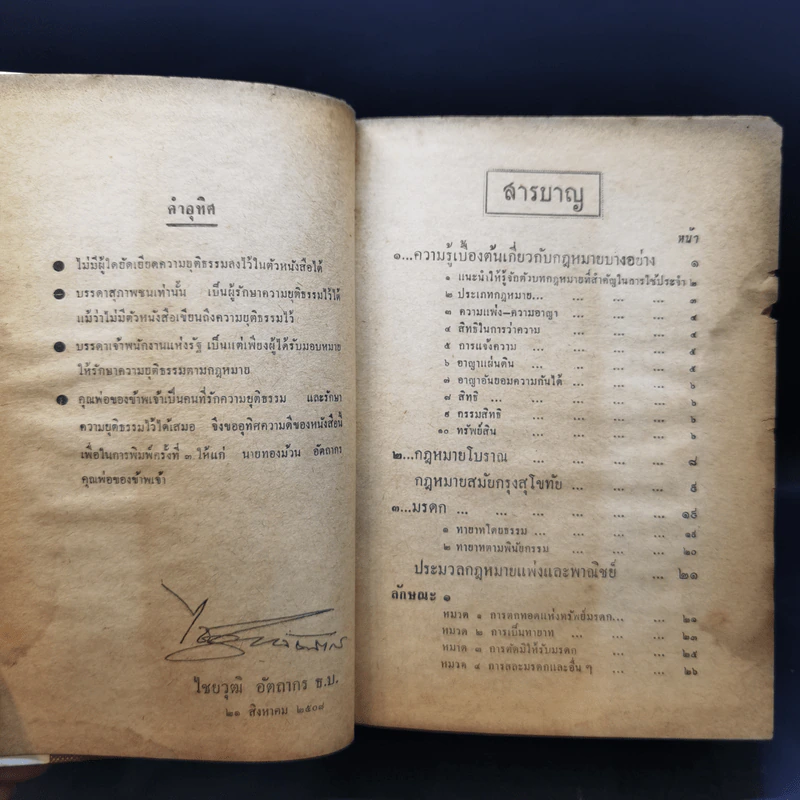 คำอุทิศ
● ไม่มีผู้ใดยัดเยียดความยุติธรรมลงไว้ในตัวหนังสือได้
● บรรดาสุภาพชนเท่านั้น เป็นผู้รักษาความยุติธรรมไว้ได้
แม้ว่าไม่มีตัวหนังสือเขียนถึงความยุติธรรมไว้
● บรรดาเจ้าพนักงานแห่งรัฐ เป็นแต่เพียงผู้ได้รับมอบหมาย
ให้รักษาความยุติธรรมตามกฎหมาย
● คุณพ่อของข้าพเจ้าเป็นคนที่รักความยุติธรรม และรักษา
ความยุติธรรมไว้ได้เสมอ จึงขออุทิศความดีของหนังสือนี้
เพื่อในการพิมพ์ครั้งที่ ๓ ให้แก่ นายทองม้วน อัตถากร
คุณพ่อของข้าพเจ้า
ไชยวุฒิ อัตถากร ธ.บ.
๒๑ สิงหาคม ๒๕๐๗
สารบาญ
หน้า
๑...ความรู้เบื้องต้นเกี่ยวกับกฎหมายบางอย่าง ๑
๑ แนะนำให้รู้จักตัวบทกฎหมายที่สำคัญในการใช้ประจำ ๒
๒ ประเภทกฎหมาย... ... ... ... ๓
๓ ความแพ่ง–ความอาญา ... ... ... ๔
๔ สิทธิในการว่าความ ... ... ... ๕
๕ การแจ้งความ ... ... ... ... ๕
๖ อาญาแผ่นดิน ... ... ... ... ๖
๗ อาญาอันยอมความกันได้ ... ... ... ๖
๘ สิทธิ ... ... ... ... ... ๖
๙ กรรมสิทธิ์ ... ... ... ... ๖
๑๐ ทรัพย์สิน ... ... ... ... ๖
๒...กฎหมายโบราณ ... ... ... ... ๘
กฎหมายสมัยกรุงสุโขทัย ... ... ... ๙
๓...มรดก ... ... ... ... ... ๑๙
๑ ทายาทโดยธรรม ... ... ... ... ๑๙
๒ ทายาทตามพินัยกรรม ... ... ... ๒๐
ประมวลกฎหมายแพ่งและพาณิชย์ ... ๒๑
ลักษณะ ๑
หมวด ๑ การตกทอดแห่งทรัพย์มรดก... ... ... ๒๑
หมวด ๒ การเป็นทายาท ... ... ... ๒๓
หมวด ๓ การตัดมิให้รับมรดก ... ... ๒๕
หมวด ๔ การสละมรดกและอื่น ๆ ... ... ๒๖